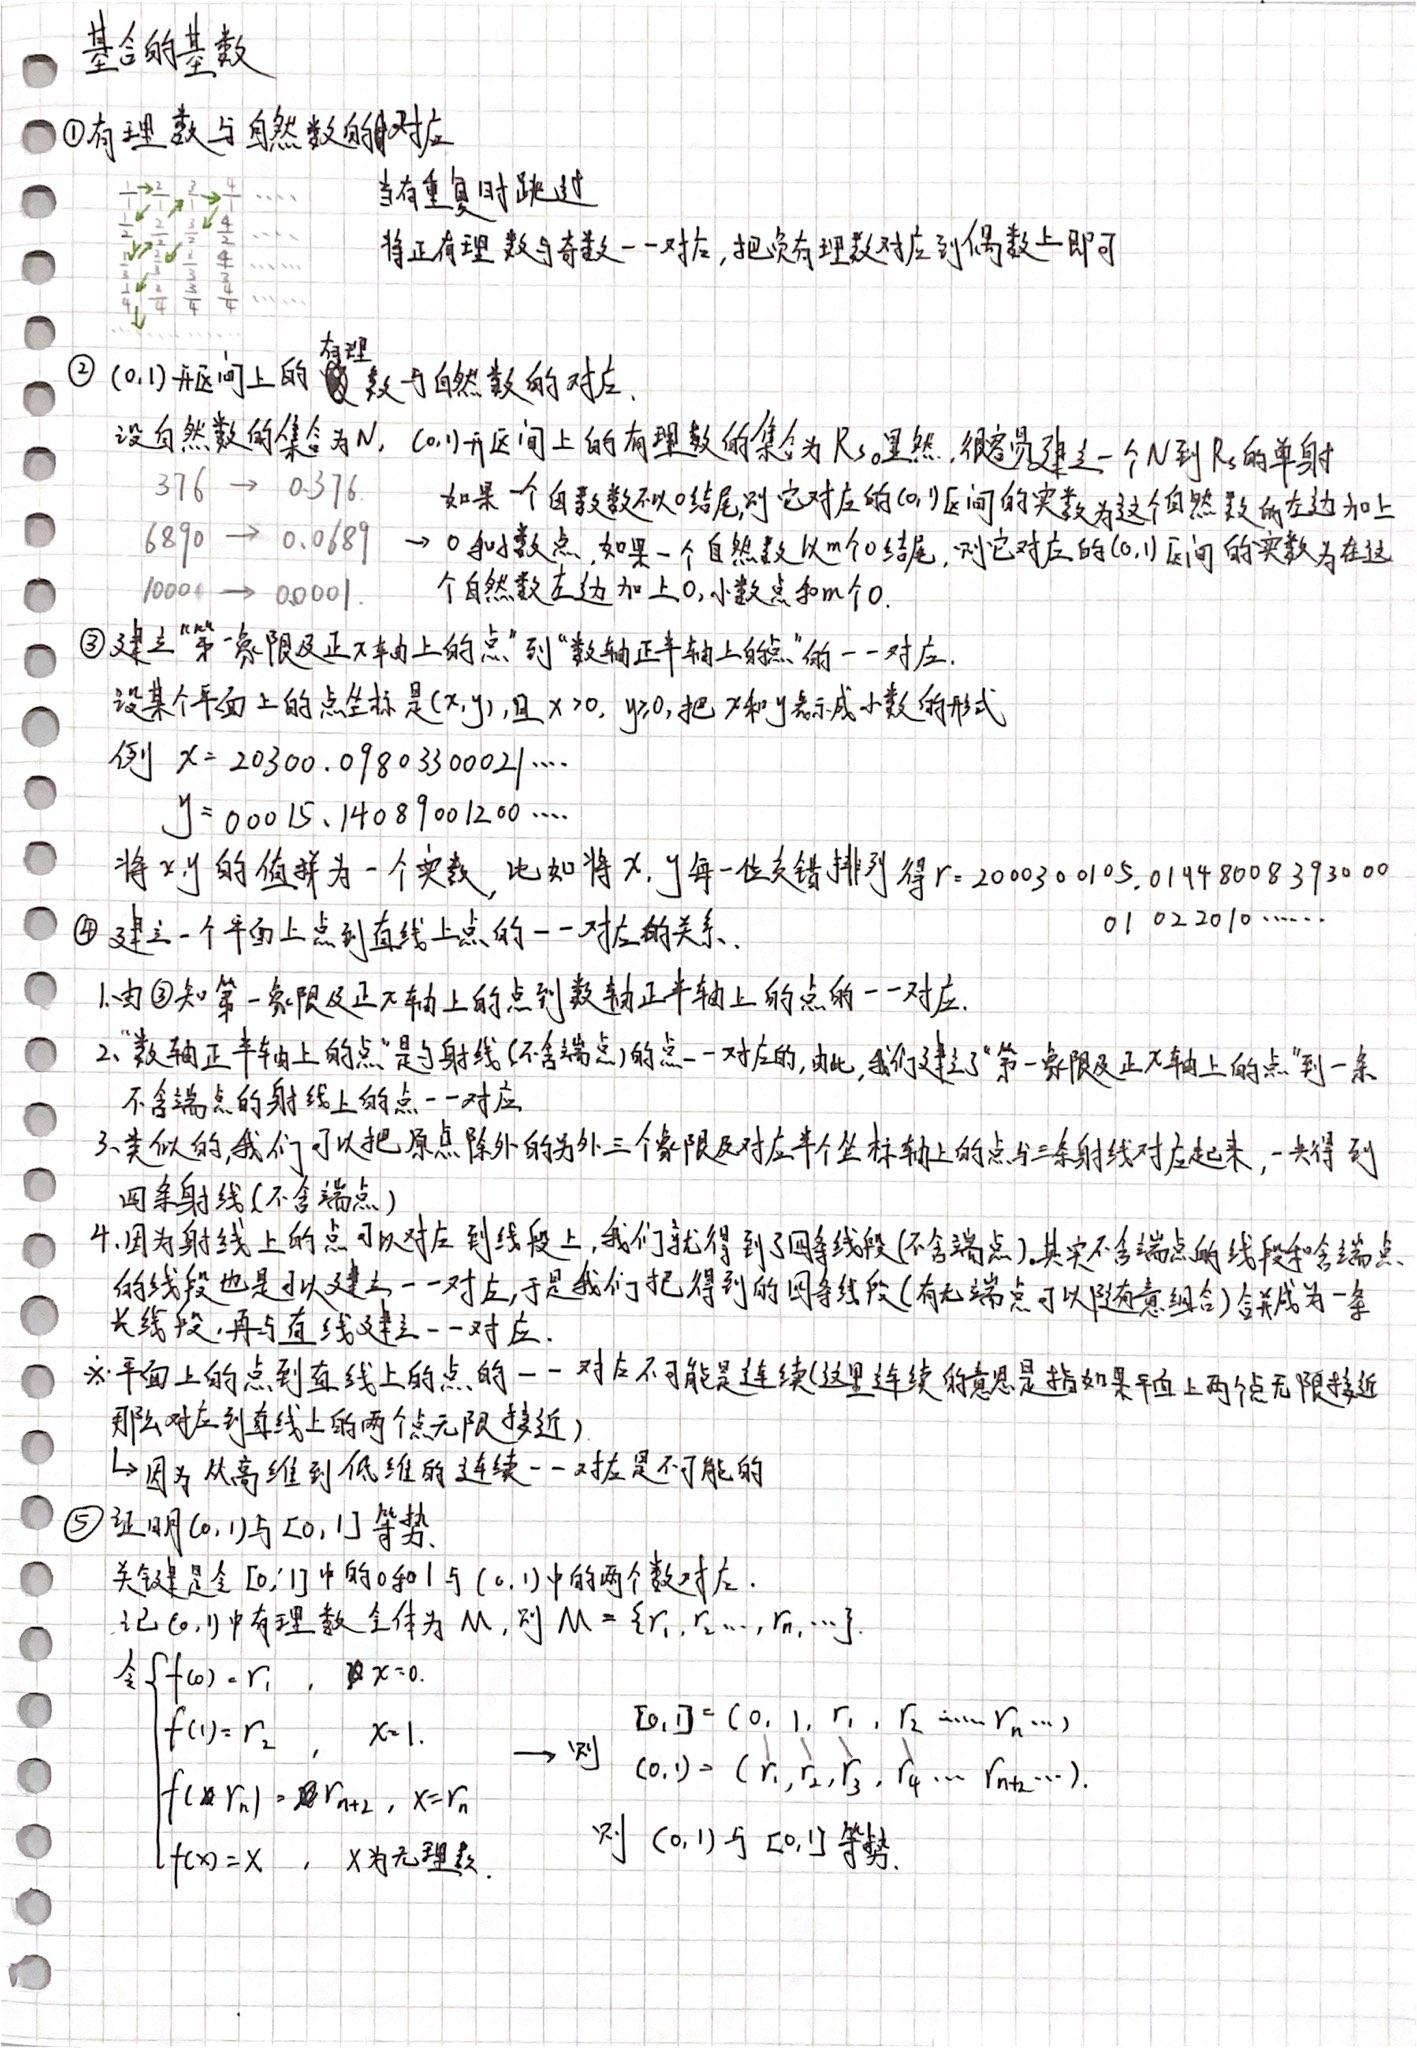 基合的基数
①有理数与自然数的对应
1/1 2/1 3/1 4/1 ····
当有重复时跳过
1/2 2/2 3/2 4/2 ····
将正有理数与奇数一一对应,把负有理数对应到偶数上即可
1/3 2/3 3/3 4/3 ·····
1/4 2/4 3/4 4/4 ·····
② (0,1)开区间上的有理数与自然数的对应.
设自然数的集合为N, (0,1)开区间上的有理数的集合为Rs。显然,很容易建立一个N到Rs的单射
376 → 0.376.
如果一个自数数不以0结尾,则它对应的(0,1)区间的实数为这个自然数的左边加上
6890 → 0.0689
→ 0和小数点,如果一个自然数以m个0结尾,则它对应的(0,1)区间的实数为在这
10000 → 0.0001.
个自然数左边加上0,小数点和m个0.
③建立"第一象限及正x轴上的点"到"数轴正半轴上的点"的一一对应.
设某个平面上的点坐标是(x,y),且x>0, y≥0,把x和y表示成小数的形式
例 x=20300.09803300021····
y=00015.14089001200····
将x,y的值拼为一个实数,比如将x,y每一位交错排列得r=2000300105.01948008393000
01 022010······
④建立一个平面上点到直线上点的一一对应的关系.
1.由③知第一象限及正x轴上的点到数轴正半轴上的点的一一对应.
2、"数轴正半轴上的点"是与射线(不含端点)的点一一对应的,由此,我们建立了"第一象限及正x轴上的点"到一条
不含端点的射线上的点一一对应
3、类似的,我们可以把原点除外的另外三个象限及对应半个坐标轴上的点与三条射线对应起来,一共得到
四条射线(不含端点)
4.因为射线上的点可以对应到线段上,我们就得到了四条线段(不含端点)。其实不含端点的线段和含端点
的线段也是可以建立一一对应,于是我们把得到的四条线段(有无端点可以随意组合)合并成为一条
长线段,再与直线建立一一对应.
※·平面上的点到直线上的点的一一对应不可能是连续(这里连续的意思是指如果平面上两个点无限接近
那么对应到直线上的两个点无限接近)
↳因为从高维到低维的连续一一对应是不可能的
⑤证明(0,1)与[0,1]等势.
关键是令[0,1]中的0和1与(0,1)中的两个数对应.
记(0,1)中有理数全体为M,则M={r₁,r₂···,rₙ,···}.
令{f(0)=r₁ , x=0.
f(1)=r₂ , x=1.
f(rₙ)=rₙ₊₂, x=rₙ
f(x)=x , x为无理数.
→ 则
[0,1]=(0, 1, r₁, r₂ ······rₙ···)
(0,1)=(r₁,r₂,r₃,r₄··· rₙ₊₂···).
则 (0,1)与[0,1]等势.